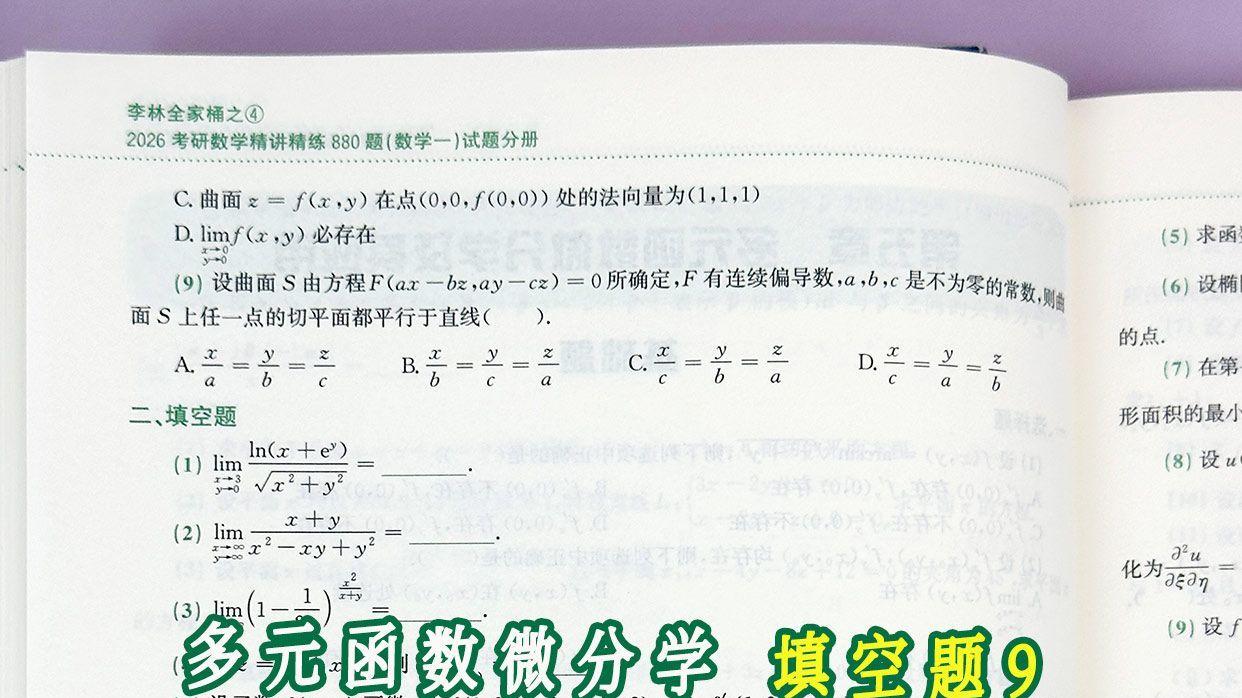 李林全家桶之④
2026 考研数学精讲精练 880 题(数学一)试题分册
C. 曲面 z = f(x,y) 在点(0,0,f(0,0)) 处的法向量为(1,1,1)
D. lim f(x,y) 必存在
x→0
y→0
(9) 设曲面 S 由方程F(ax − bz,ay − cz) = 0 所确定,F 有连续偏导数,a,b,c 是不为零的常数,则曲
面 S 上任一点的切平面都平行于直线( ).
A. x/a = y/b = z/c B. x/b = y/c = z/a C. x/c = y/b = z/a D. x/c = y/a = z/b
二、填空题
(1) lim x→3 y→0 ln(x + e^y)/√(x² + y²) = ________.
(2) lim x→∞ y→∞ (x + y)/(x² − xy + y²) = ________.
(3) lim (1 − 1/ )^(x²/(x+y)) = ________.
多元函数微分学 填空题9
(5) 求函
(6) 设椭
的点.
(7) 在第
形面积的最小
(8) 设 u
化为 ∂²u/∂ξ∂η =
(9) 设 f